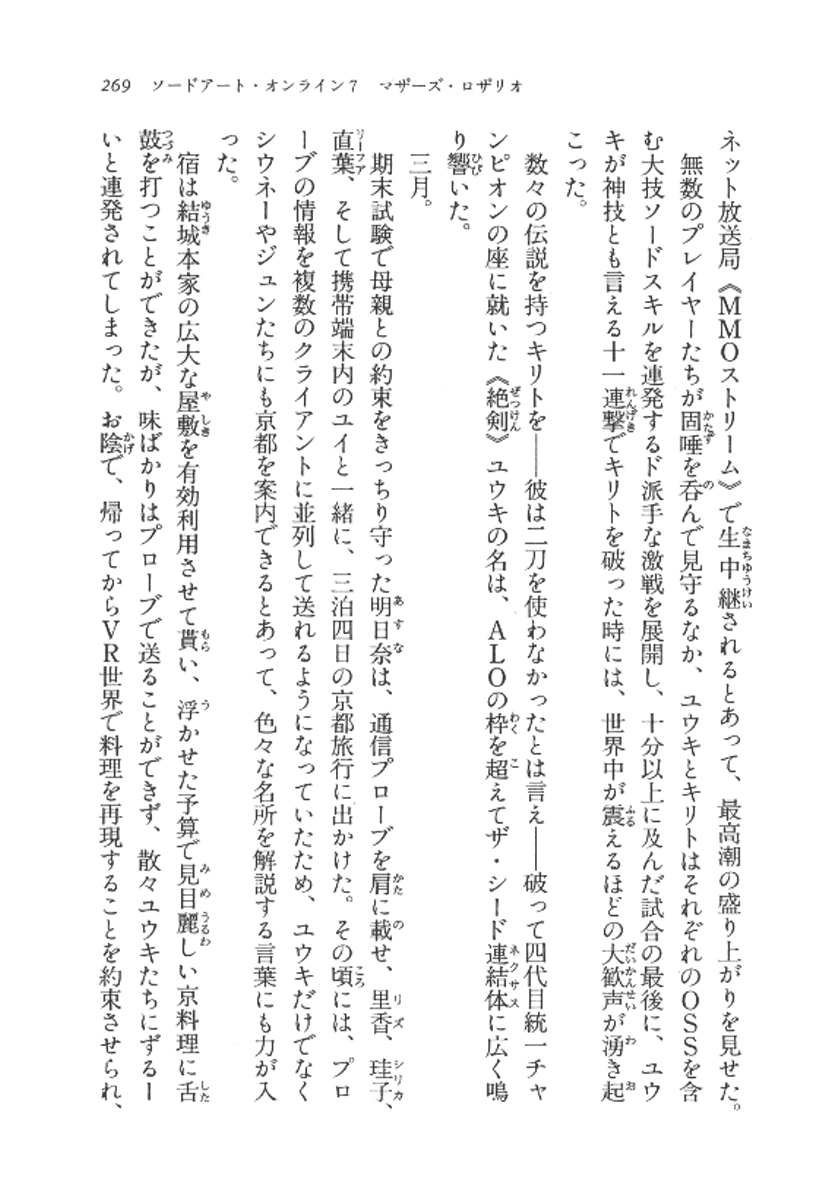 269　ソードアート・オンライン7　マザーズ・ロザリオ
ネット放送局《MMOストリーム》で生中継されるとあって、最高潮の盛り上がりを見せた。
無数のプレイヤーたちが固唾を呑んで見守るなか、ユウキとキリトはそれぞれのOSSを含
む大技ソードスキルを連発するド派手な激戦を展開し、十分以上に及んだ試合の最後に、ユウ
キが神技とも言える十一連撃でキリトを破った時には、世界中が震えるほどの大歓声が湧き起
こった。
数々の伝説を持つキリトを――彼は二刀を使わなかったとは言え――破って四代目統一チャ
ンピオンの座に就いた《絶剣》ユウキの名は、ALOの枠を超えてザ・シード連結体に広く鳴
り響いた。
三月。
期末試験で母親との約束をきっちり守った明日奈は、通信プローブを肩に載せ、里香、珪子、
直葉、そして携帯端末内のユイと一緒に、三泊四日の京都旅行に出かけた。その頃には、プロ
ーブの情報を複数のクライアントに並列して送れるようになっていたため、ユウキだけでなく
シウネーやジュンたちにも京都を案内できるとあって、色々な名所を解説する言葉にも力が入
った。
宿は結城本家の広大な屋敷を有効利用させて貰い、浮かせた予算で見目麗しい京料理に舌
鼓を打つことができたが、味ばかりはプローブで送ることができず、散々ユウキたちにずるー
いと連発されてしまった。お陰で、帰ってからVR世界で料理を再現することを約束させられ、